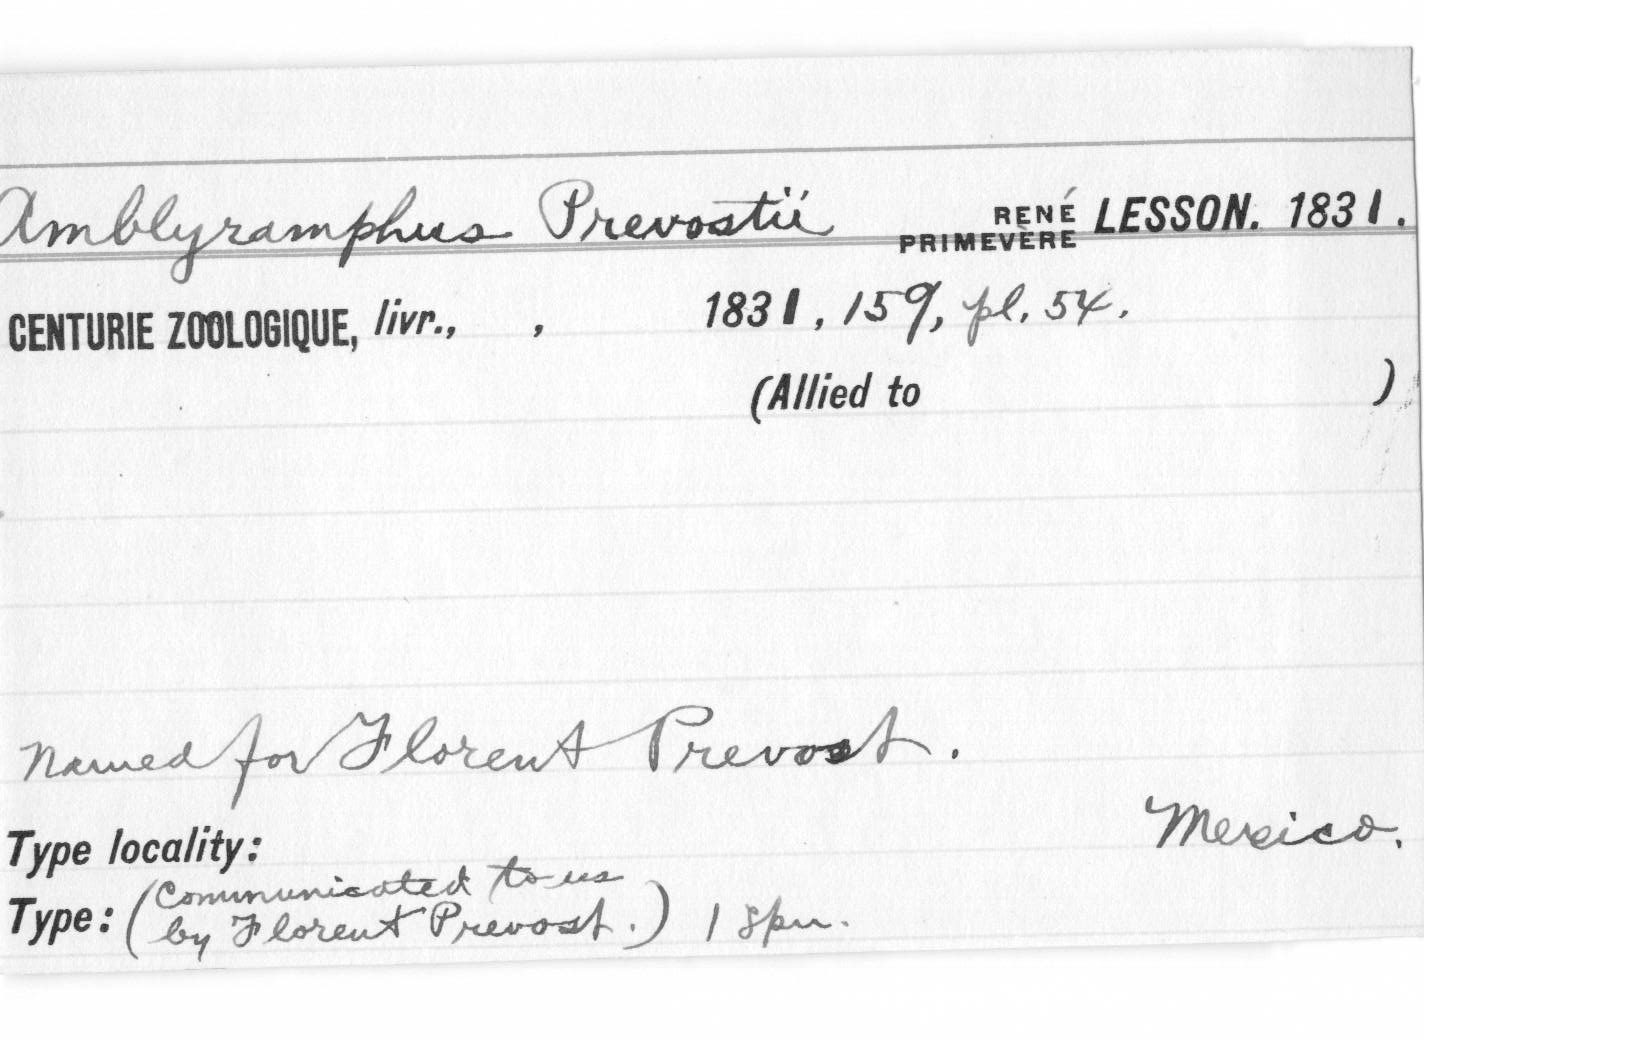 Amblyramphus Prevostii RENÉ PRIMEVÈRE LESSON. 1831.
CENTURIE ZOOLOGIQUE, livr., , 1831, 159, pl. 54.
(Allied to )
Named for Florent Prevost.
Type locality: Mexico.
Type: (Communicated to us
by Florent Prevost.) 1 spm.